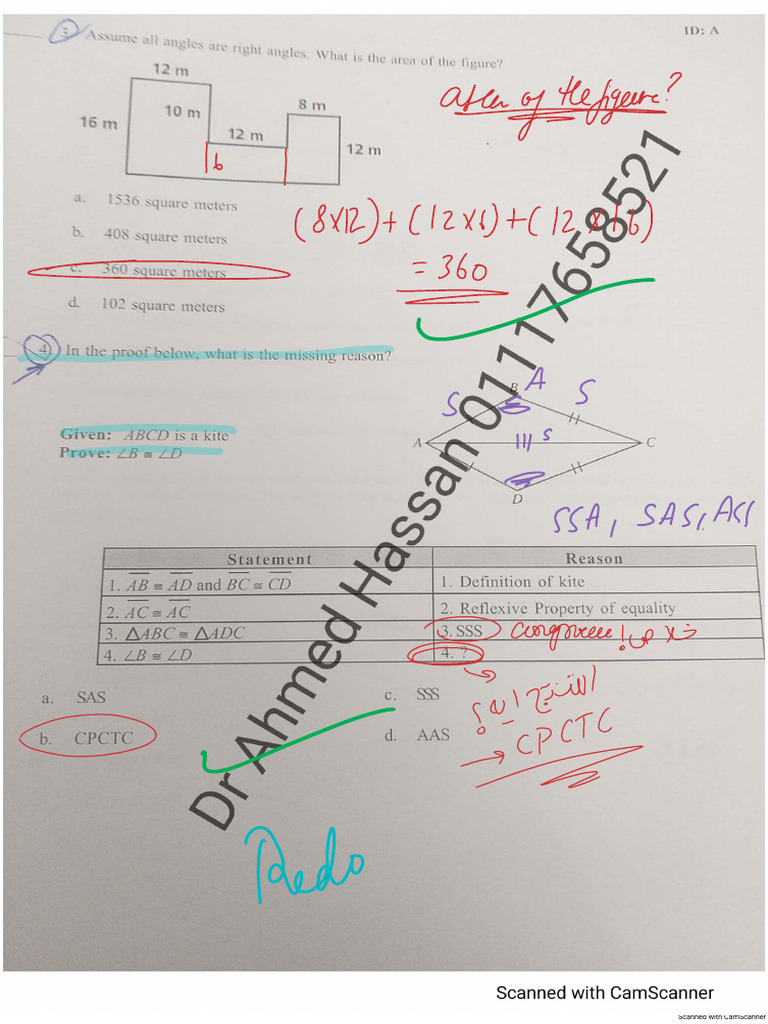 ID: A
3. Assume all angles are right angles. What is the area of the figure?
12 m
10 m
8 m
16 m
12 m
12 m
6
Area of the figure?
a. 1536 square meters
b. 408 square meters
c. 360 square meters
d. 102 square meters
(8x12)+(12x6)+(12x16)
= 360
4) In the proof below, what is the missing reason?
Given: ABCD is a kite
Prove: ∠B ≅ ∠D
S A S
B
A
S
C
D
SSA, SAS,
Statement Reason
1. AB ≅ AD and BC ≅ CD 1. Definition of kite
2. AC ≅ AC 2. Reflexive Property of equality
3. △ABC ≅ △ADC 3. SSS خلاص!
4. ∠B ≅ ∠D 4. ?
a. SAS c. SSS
b. CPCTC d. AAS
ايه؟
→ CPCTC
Redo
Dr Ahmed Hassan 01117658521
Scanned with CamScanner
Scanned with CamScanner